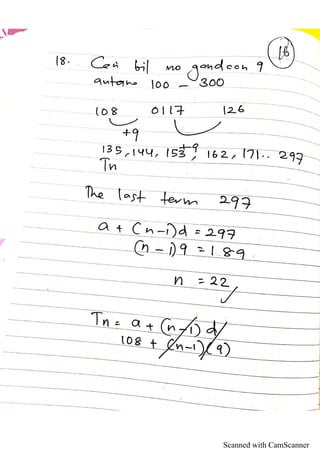 16
18. Cari bil no gandaan 9
antara 100 - 300
108 0117 126
+9 +9
135, 144, 153, 162, 171.. 297
Tn
The last term 297
a + (n-1)d = 297
(n - 1)9 = 189
n = 22
Tn = a + (n-1)d
108 + (n-1)(9)
Scanned with CamScanner